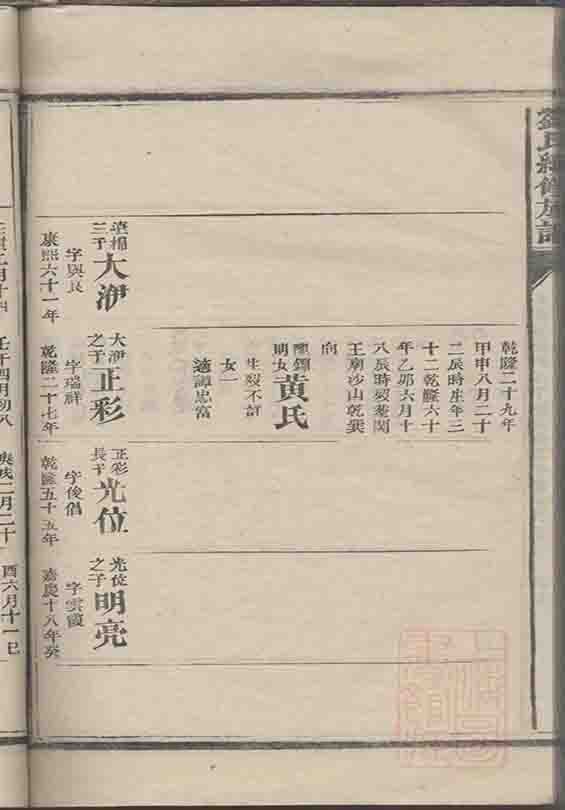 氏續修族譜
乾隆二十九年
甲申八月二十
二辰時生年三
十二乾隆六十
年乙卯六月十
八辰時歿葬関
王廟沙山乾巽
向
明女黃氏
生歿不詳
女一
適譚忠富
三子大洢
字與良
康熙六十一年
大洢之子正彩
字瑞祥
乾隆二十七年
正彩長子光位
字俊倡
乾隆五十五年
光位之子明亮
字雲霞
嘉慶十八年癸
壬寅二月十四
壬午四月初八
庚戌二月二十
酉六月十一巳